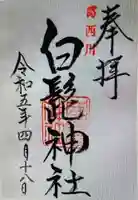 奉拝
西川
白龍神社
令和五年四月十八日